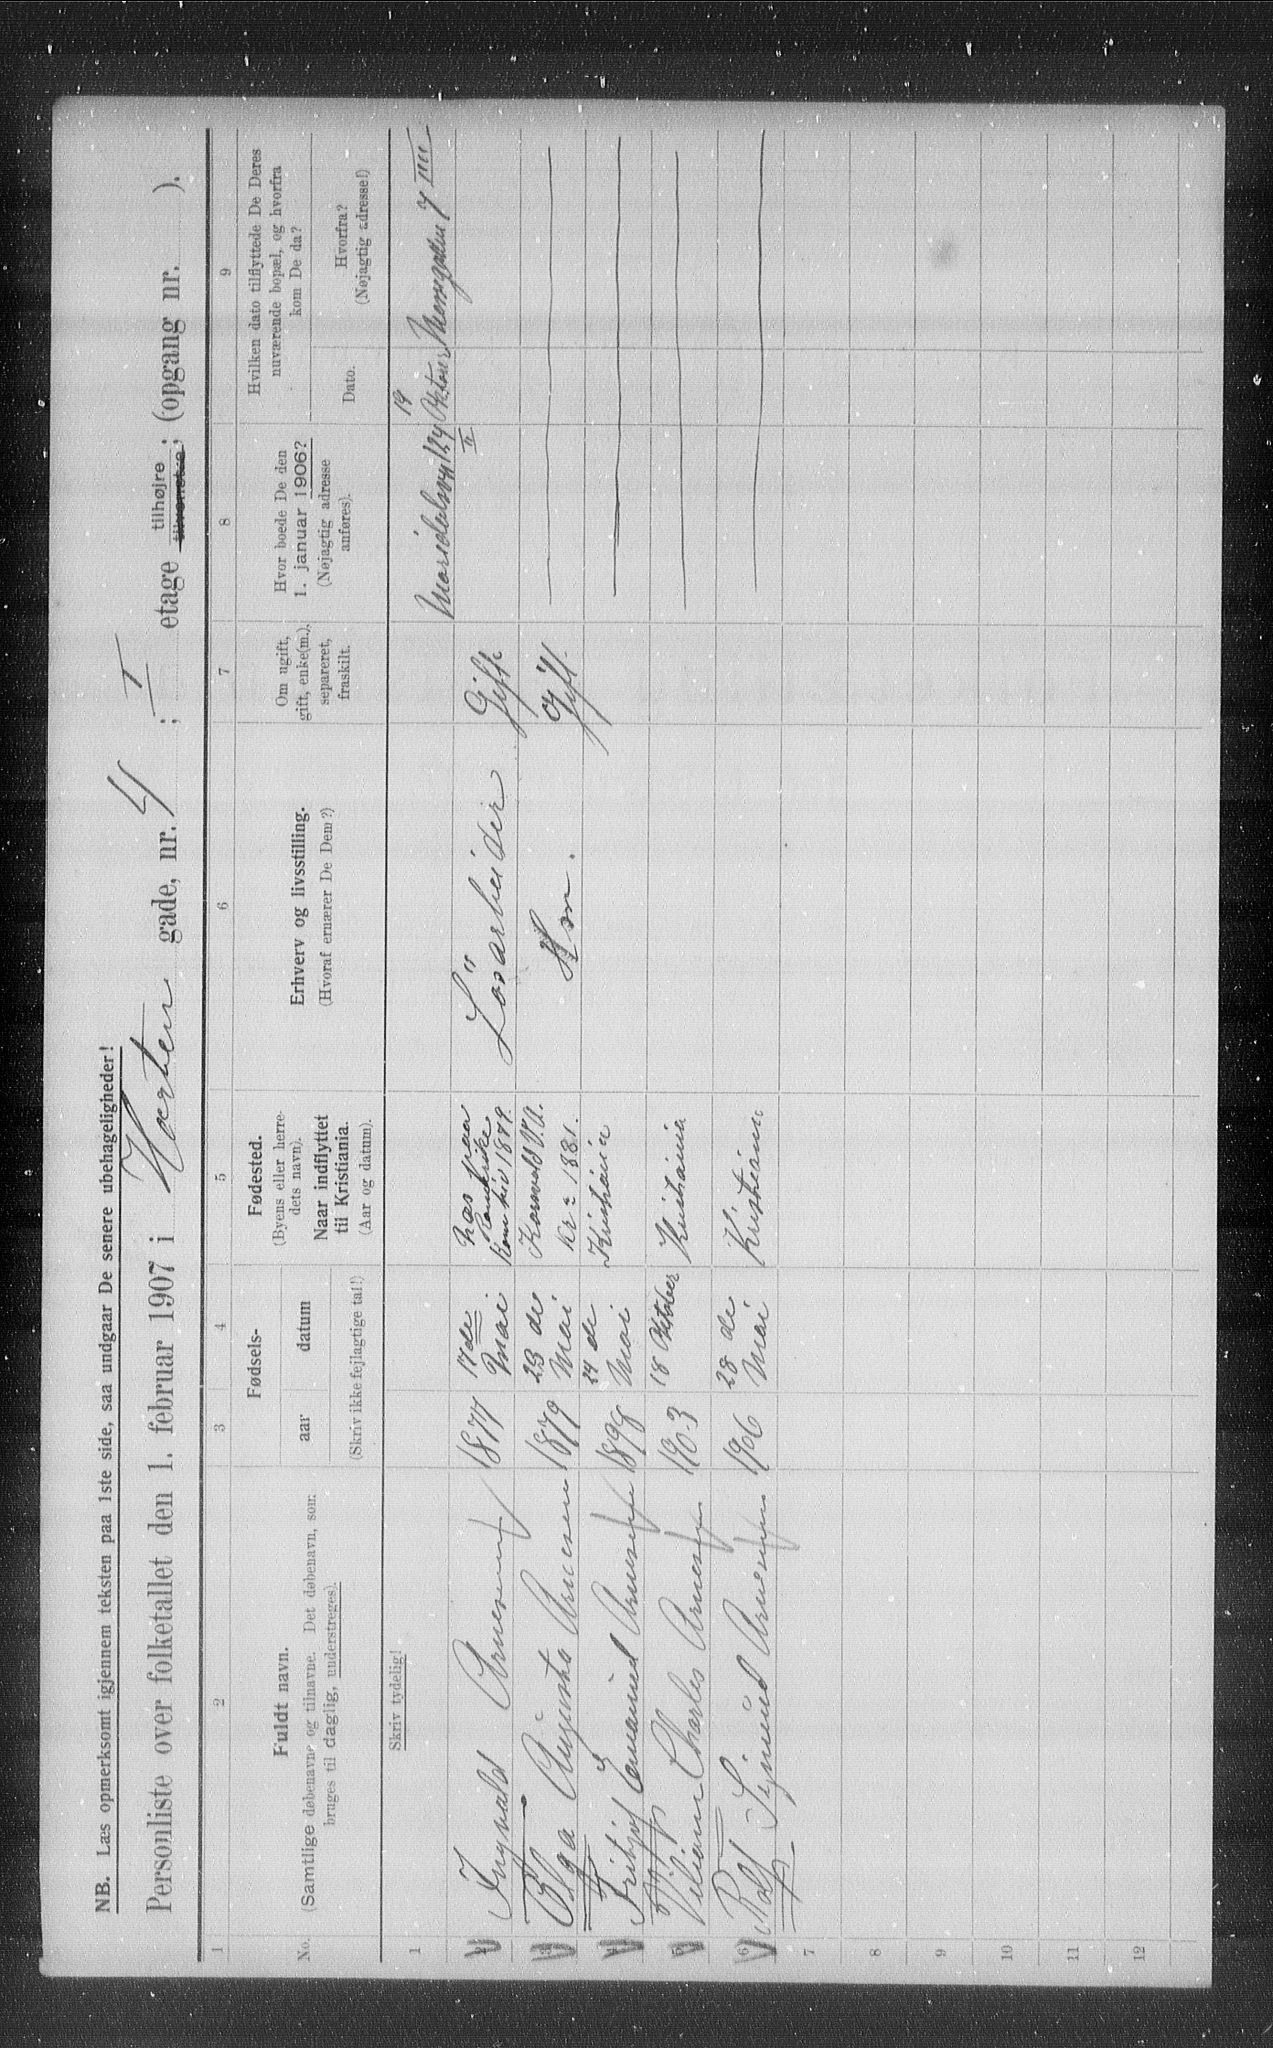 NB. Læs opmerksomt igjennem teksten paa 1ste side, saa undgaar De senere ubehageligheder!
Personliste over folketallet den 1. februar 1907 i Horten gade, nr. 4 ; I etage tilhøjre tilvenstre; (opgang nr. ).
1 2 3 4 5 6 7 8 9
No.
Fuldt navn.
(Samtlige døbenavne og tilnavne. Det døbenavn, som
bruges til daglig, understreges).
Fødsels-
aar datum
(Skriv ikke fejlagtige tal!)
Fødested.
(Byens eller herre-
dets navn).
Naar indflyttet
til Kristiania.
(Aar og datum).
Erhverv og livsstilling.
(Hvoraf ernærer De Dem?)
Om ugift,
gift, enke(m.),
separeret,
fraskilt.
Hvor boede De den
1. januar 1906?
(Nøjagtig adresse
anføres).
Hvilken dato tilflyttede De Deres
nuværende bopæl, og hvorfra
kom De da?
Dato.
Hvorfra?
(Nøjagtig adresse!)
Skriv tydelig!
1 Maridalsvn 124 II 14 Oktober 7 IIII
2 Ingvald Arnesen 1877 17de Mai Næs paa Romerike Kom hid 1879. Lösarbeider Gift
3 Olga Augusta Arnesen 1879 23 de Mai Kr: 1881. Hm. Gift
4 Frithjof Emanuel Arnesen 1898 24 de Mai Kristiania
5 Viliam Charles Arnesen 1903 18 Oktober Kristiania
6 Rolf Sigmud Arnesen 1906 28 de Mai Kristiania
7
8
9
10
11
12